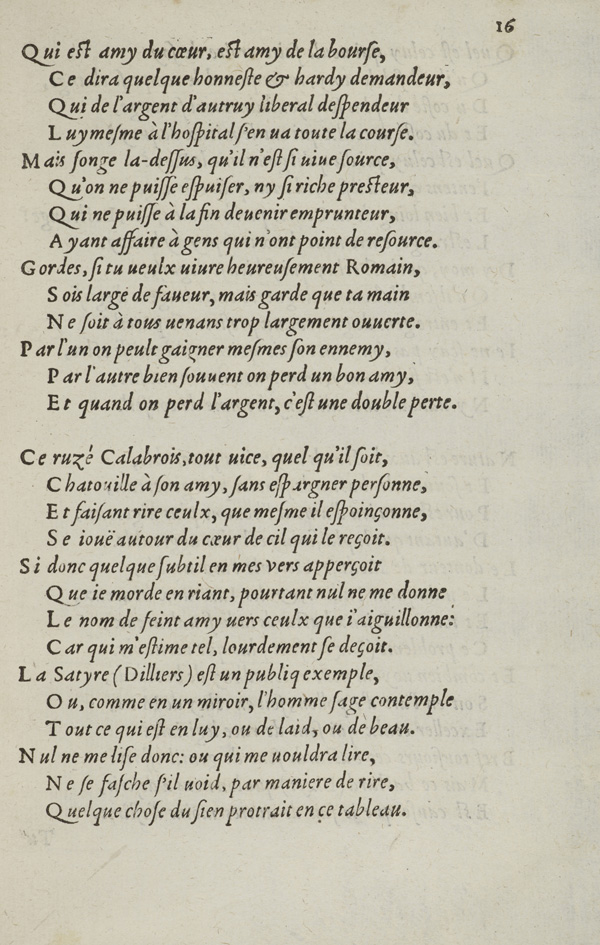 16
Qui est amy du cœur, est amy de la bourse,
Ce dira quelque honneste & hardy demandeur,
Qui de l'argent d'autruy liberal despendeur
Luymesme à l'hospital s'en ua toute la course.
Mais songe la-dessus, qu'il n'est si uiue source,
Qu'on ne puisse espuiser, ny si riche presteur,
Qui ne puisse à la fin deuenir emprunteur,
Ayant affaire à gens qui n'ont point de resource.
Gordes, si tu ueulx uiure heureusement Romain,
Sois large de faueur, mais garde que ta main
Ne soit à tous uenans trop largement ouuerte.
Par l'un on peult gaigner mesmes son ennemy,
Par l'autre bien souuent on perd un bon amy,
Et quand on perd l'argent, c'est une double perte.
Ce ruzé Calabrois, tout uice, quel qu'il soit,
Chatouille à son amy, sans espargner personne,
Et faisant rire ceulx, que mesme il espoinçonne,
Se iouë autour du cœur de cil qui le reçoit.
Si donc quelque subtil en mes uers apperçoit
Que ie morde en riant, pourtant nul ne me donne
Le nom de feint amy uers ceulx que i'aiguillonne:
Car qui m'estime tel, lourdement se deçoit.
La Satyre (Dilliers) est un publiq exemple,
Ou, comme en un miroir, l'homme sage contemple
Tout ce qui est en luy, ou de laid, ou de beau.
Nul ne me lise donc: ou qui me uouldra lire,
Ne se fasche s'il uoid, par maniere de rire,
Quelque chose du sien protrait en ce tableau.